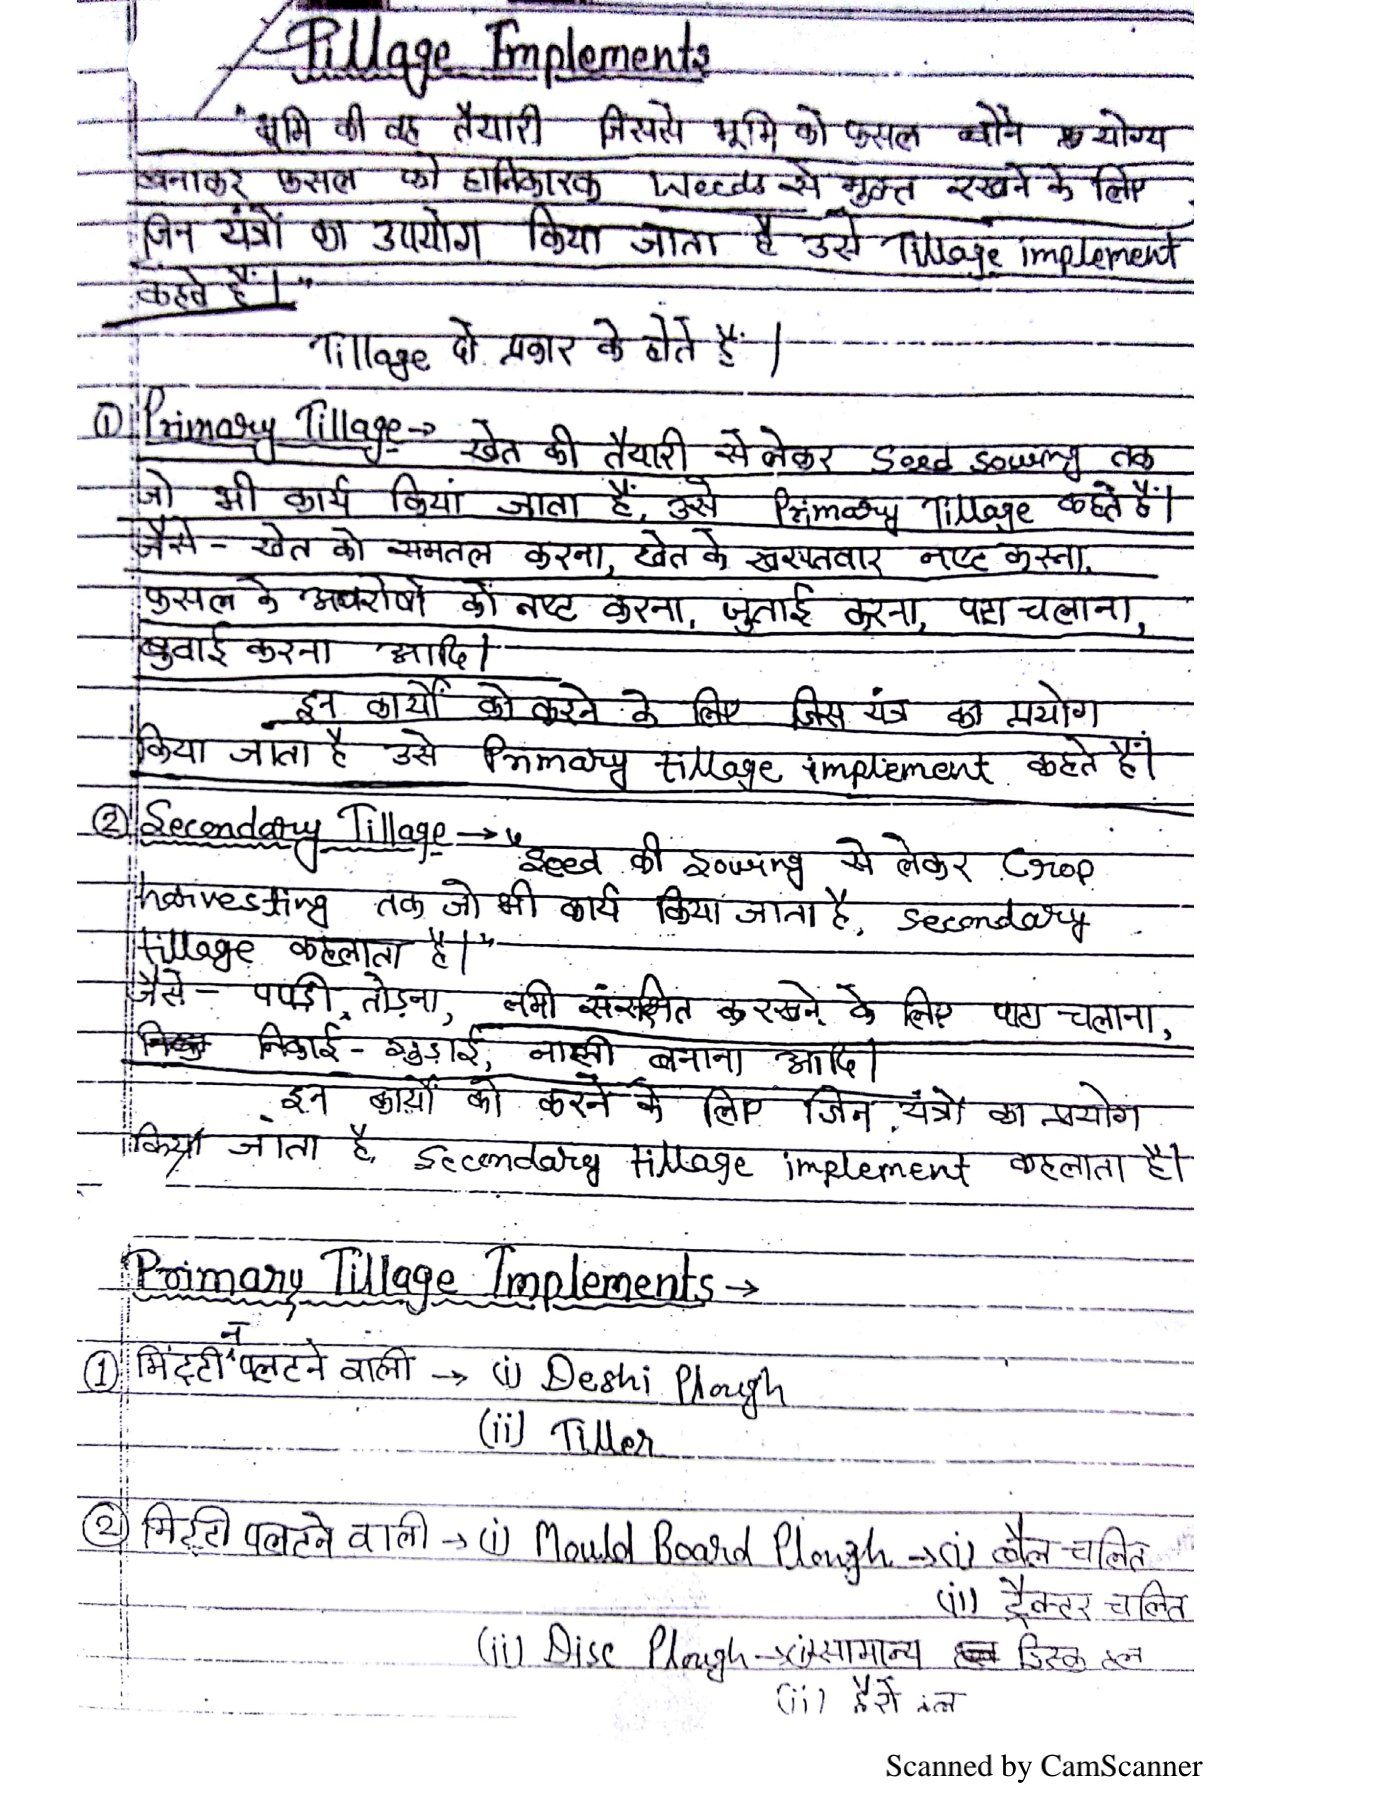 Tillage Implements
"भूमि की वह तैयारी जिससे भूमि को फसल बोने योग्य
बनाकर फसल को हानिकारक Weeds से मुक्त रखने के लिए
जिन यंत्रों का उपयोग किया जाता है उसे Tillage implement
कहते हैं।"
Tillage दो प्रकार के होते हैं।
① Primary Tillage → खेत की तैयारी से लेकर Seed sowing तक
जो भी कार्य किया जाता हैं, उसे Primary Tillage कहते हैं।
जैसे - खेत को समतल करना, खेत के खरपतवार नष्ट करना,
फसल के अवशेषों को नष्ट करना, जुताई करना, पाटा चलाना,
बुवाई करना आदि।
इन कार्यों को करने के लिए जिस यंत्र का प्रयोग
किया जाता है उसे Primary tillage implement कहते हैं।
② Secondary Tillage → "Seed की sowing से लेकर Crop
harvesting तक जो भी कार्य किया जाता है, secondary
tillage कहलाता है।"
जैसे - पपड़ी तोड़ना, नमी संरक्षित रखने के लिए पाटा चलाना,
निकाई - गुड़ाई, नाली बनाना आदि।
इन कार्यों को करने के लिए जिन यंत्रों का प्रयोग
किया जाता है, secondary tillage implement कहलाता है।
Primary Tillage Implements →
① मिट्टी न पलटने वाली → (i) Deshi Plough
(ii) Tiller
② मिट्टी पलटने वाली → (i) Mould Board Plough → (i) बैल चलित
(ii) ट्रैक्टर चलित
(ii) Disc Plough → (i) सामान्य डिस्क हल
(ii) हैरो हल
Scanned by CamScanner